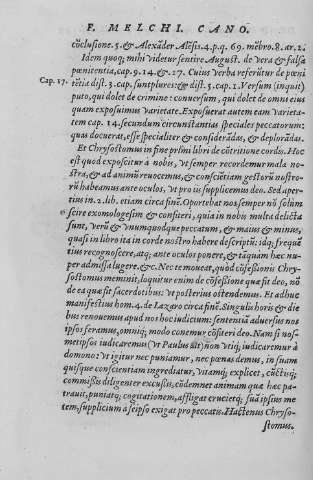 F. MELCHI. CANO.
cõclusione. 5. & Alexãder Alẽsis. 4. p. q. 69. mẽbro. 8. ar. 2.
Idem quoq; mihi videtur sentire August. de vera & falsa
pœnitentia, cap. 9. 14. & 17. Cuius verba referũtur de pœni
Cap. 17.
tẽtia dist. 3. cap. sunt plures: & dist. 5. cap. 1. Versum (inquit)
puto, qui dolet de crimine: conuersum, qui dolet de omni eius
quam exposuimus varietate. Exposuerat autem eam varieta-
tem cap. 14. secundum circunstantias speciales peccatorum:
quas docuerat, esse specialiter & considerãdas, & deplorãdas.
Et Chrysostomus in fine primi libri de cõtritione cordis. Hoc
est quod exposcitur à nobis, vt semper recordemur mala no-
stra, & ad animũ reuocemus, & consciẽtiam gestorũ nostro-
rũ habeamus ante oculos, vt pro iis supplicemus deo. Sed aper-
tius in. 2. lib. etiam circa finẽ. Oportebat nos semper nõ solùm
scire exomologesim & confiteri, quia in nobis multa delicta
sunt, verũ & vnumquodque peccatum, & maius & minus,
quasi in libro ita in corde nostro habere descriptũ: idq; frequẽ
tius recognoscere, atq; ante oculos ponere, & taquam hæc nu-
per admissa lugere. &c. Nec te moueat, quòd cõfessionis Chry-
sostomus meminit, loquitur enim de cõfessione quæ fit deo, nõ
de ea quæ fit sacerdotibus: vt posterius ostendemus. Et adhuc
manifestius hom. 4. de Lazaro circa finẽ. Singulis horis & die
bus renouemus apud nos hoc iudicium: sententiã aduersus nos
ipsos feramus, omniq; modo conemur cõfiteri deo. Nam si nos-
metipsos iudicaremus (vt Paulus ait) nõn vtiq; iudicaremur à
domono: vt igitur nec puniamur, nec pœnas demus, in suam
quisque conscientiam ingrediatur, vitamq; explicet, cũctisq;
commissis diligenter excussis, cõdemnet animam quæ hæc pa-
trauit, puniatq; cogitationem, affligat crucietq; suã ipsius me
tem, supplicium à seipso exigat pro peccatis. Hactenus Chryso-
stomus.